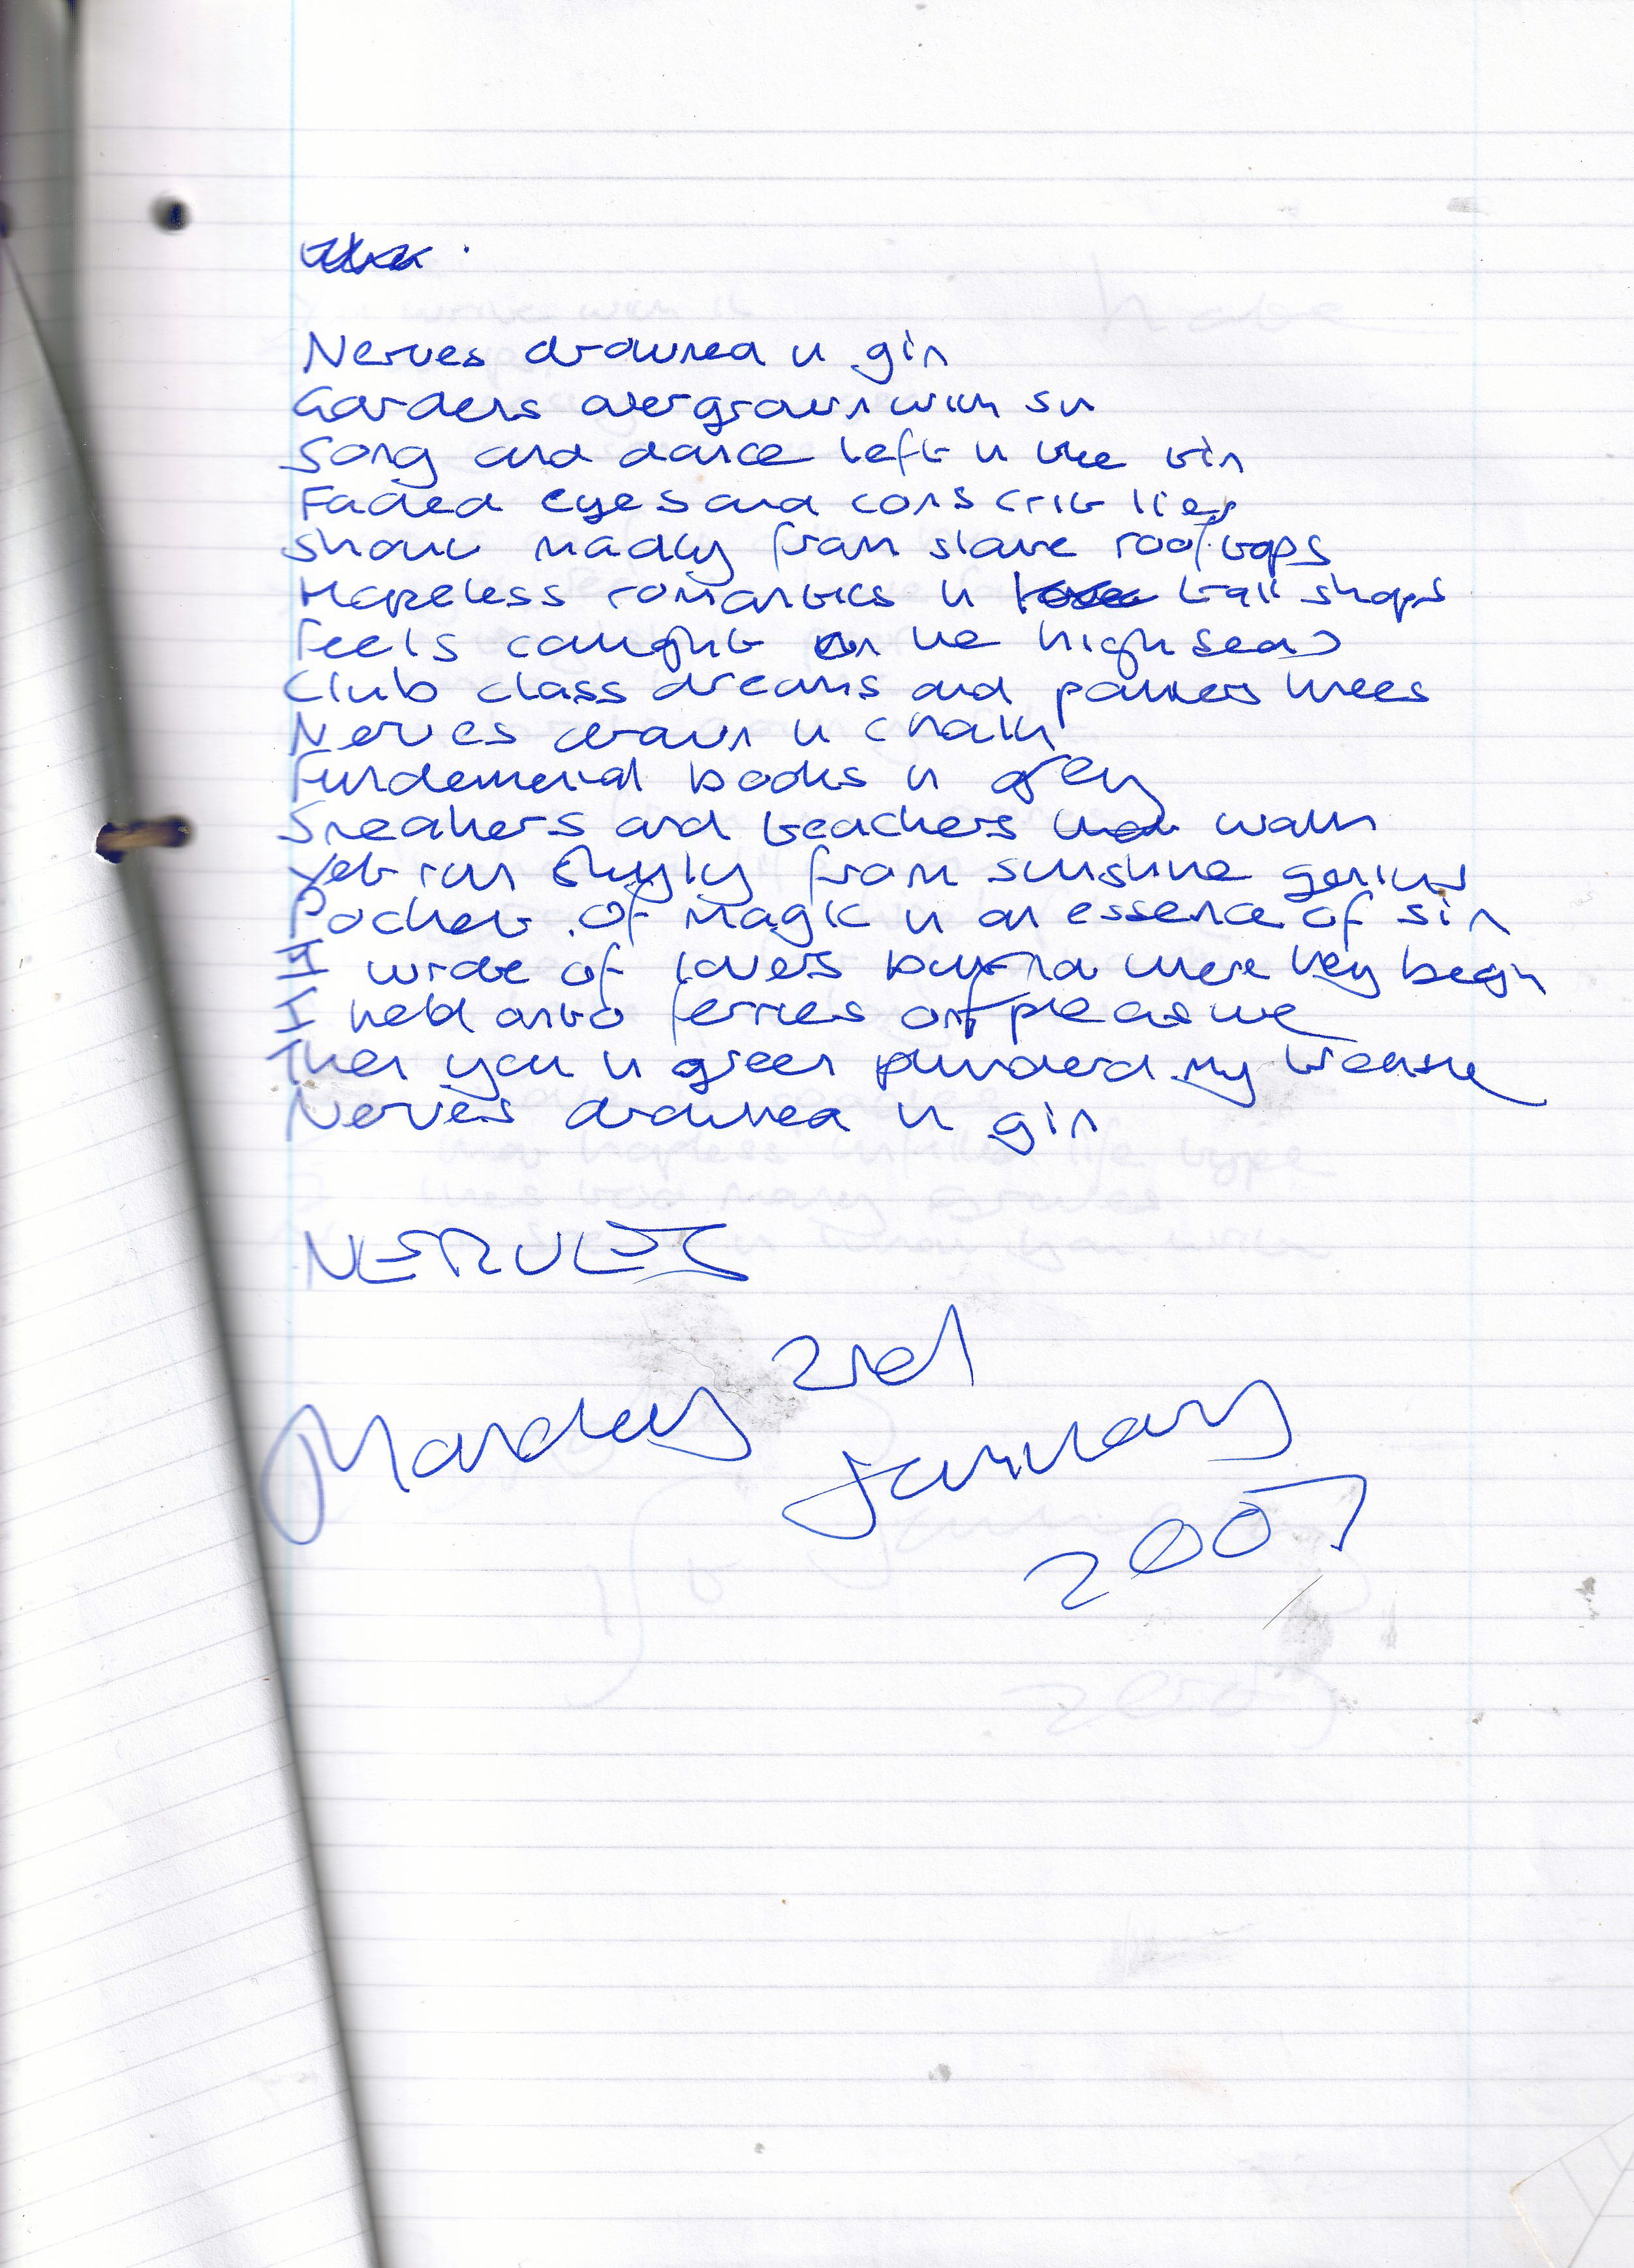 Nerves drowned in gin
Gardens overgrown with sin
Song and dance left in the tin
Faded eyes and conscript lies
Shout madly from slave rooftops
Hopeless romantics in tall shops
Feels caught on the high seas
Club class dreams and paupers knees
Nerves drawn in chalk
Fundemental books in grey
Sneakers and teachers walk
Yet run shyly from sunshine genius
Pocket of magic in an essence of sin
I wrote of lovers but not where they begin
I held onto ferries of pleasure
Then you in green plundered my treasure
Nerves drowned in gin
NERVES
2nd
January
2007